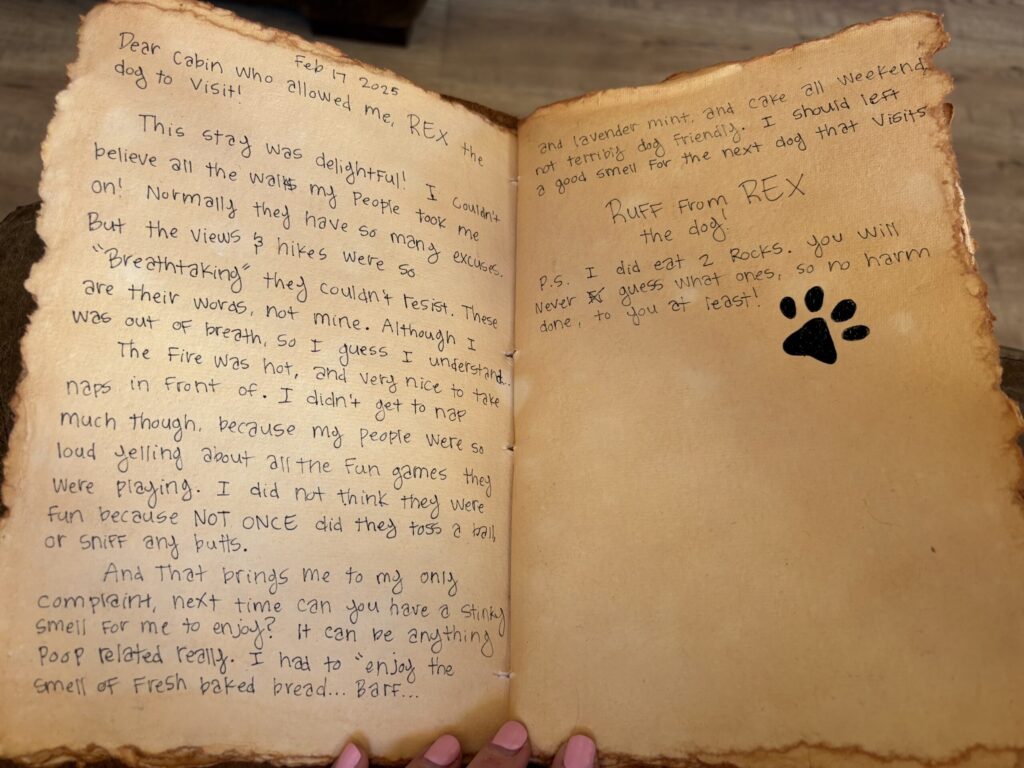 Feb 17 2025
Dear Cabin who allowed me, REX the
dog to visit!
This stay was delightful! I couldn't
believe all the walks my people took me
on! Normally they have so many excuses.
But the views & hikes were so
"Breathtaking" they couldn't resist. These
are their words, not mine. Although I
was out of breath, so I guess I understand...
The Fire was hot, and very nice to take
naps in front of. I didn't get to nap
much though, because my people were so
loud yelling about all the fun games they
were playing. I did not think they were
fun because NOT ONCE did they toss a ball
or sniff any butts.
And That brings me to my only
complaint, next time can you have a stinky
smell for me to enjoy? It can be anything
Poop related really. I had to "enjoy the
smell of Fresh baked bread... Barf...
and lavender mint, and cake all weekend,
not terribly dog friendly. I should left
a good smell for the next dog that visits
RUFF From REX
the dog!
P.S. I did eat 2 Rocks. You will
never guess what ones, so no harm
done, to you at least!